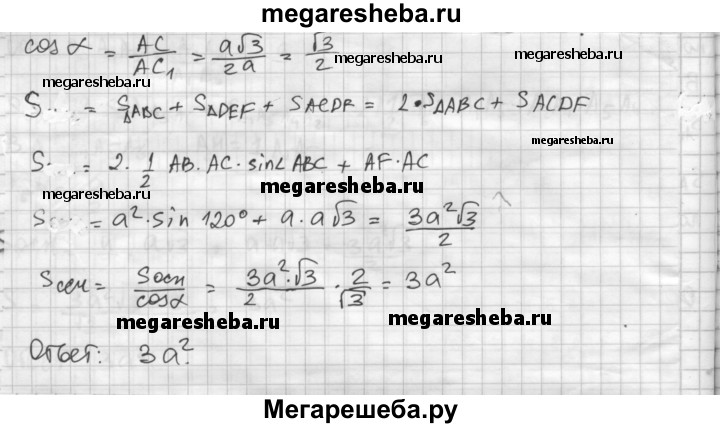 megaresheba.ru
cos α = AC / AC₁ = a√3 / 2a = √3 / 2
megaresheba.ru
megaresheba.ru
S.... = S△ABC + S△DEF + SACDF = 2•S△ABC + SACDF
megaresheba.ru
megaresheba.ru
S.... = 2 · 1/2 AB · AC · sin∠ABC + AF · AC
megaresheba.ru
megaresheba.ru
S.... = a² · sin 120° + a · a√3 = 3a²√3 / 2
megaresheba.ru
Sсеч = Sосн / cosα = 3a² · √3 / 2 · 2 / √3 = 3a²
megaresheba.ru
megaresheba.ru
Ответ: 3a².
megaresheba.ru
Мегарешеба.ру